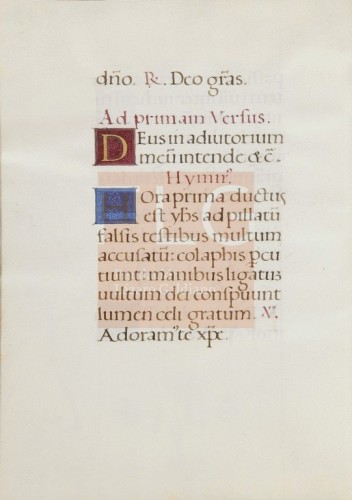 dño. ℟. Deo grãs.
Ad primam Versus.
Deus in adiutorium
meũ intende & c̃.
Hymn⁹.
Hora prima ductus
est yhs ad pillatũ
falsis testibus multum
accusatũ: colaphis pcu
tiunt manibus ligatus
uultum dei conspuunt
lumen celi gratum. ℣.
Adoram⁹ te xp̃e.